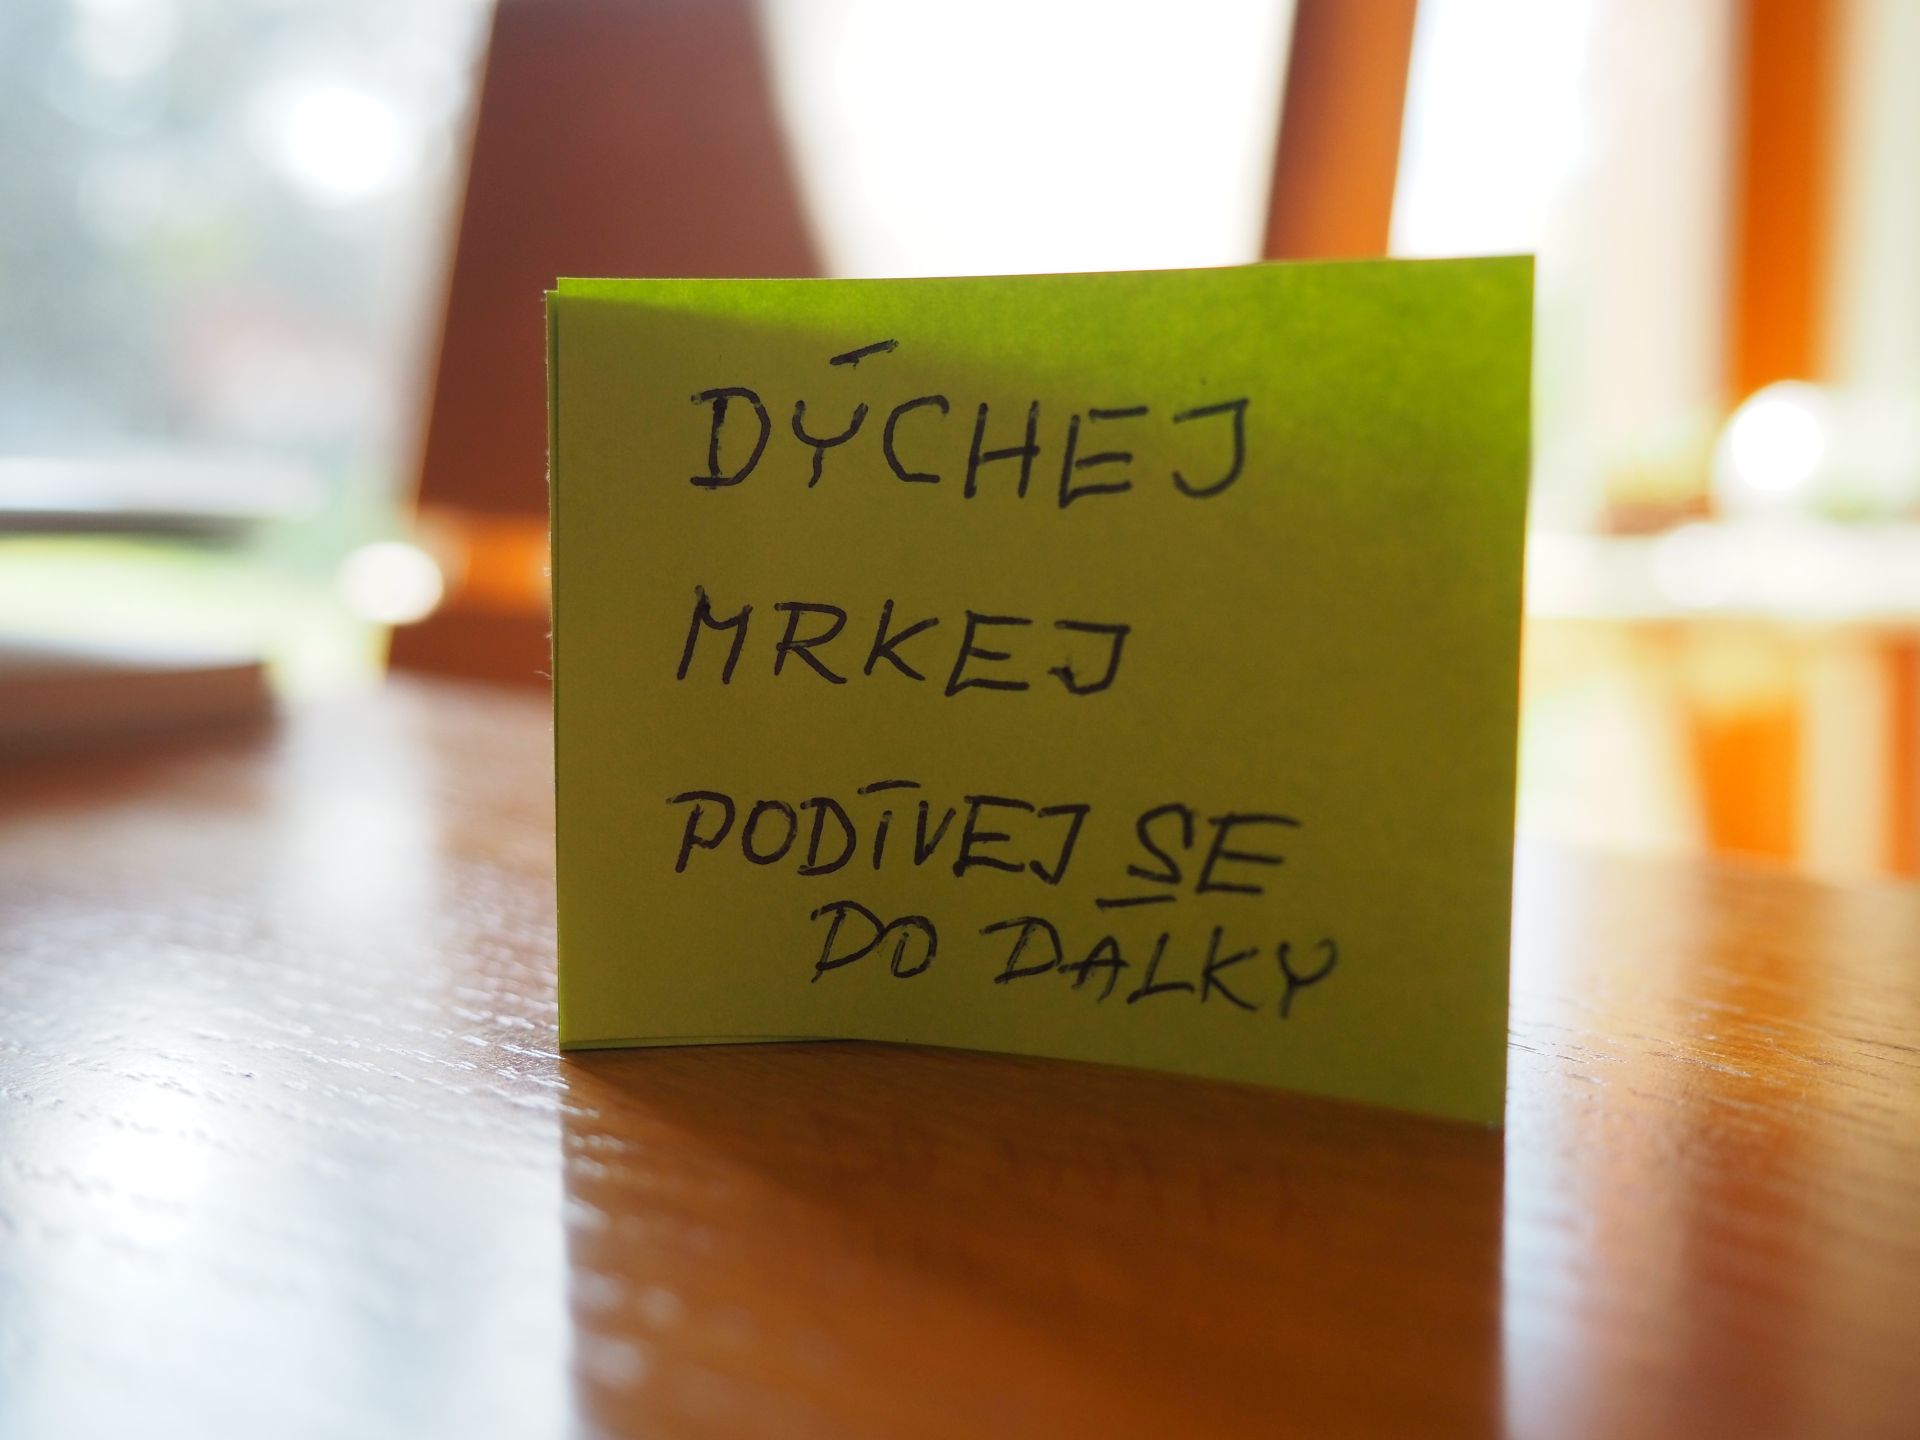 DÝCHEJ
MRKEJ
PODÍVEJ SE
DO DÁLKY